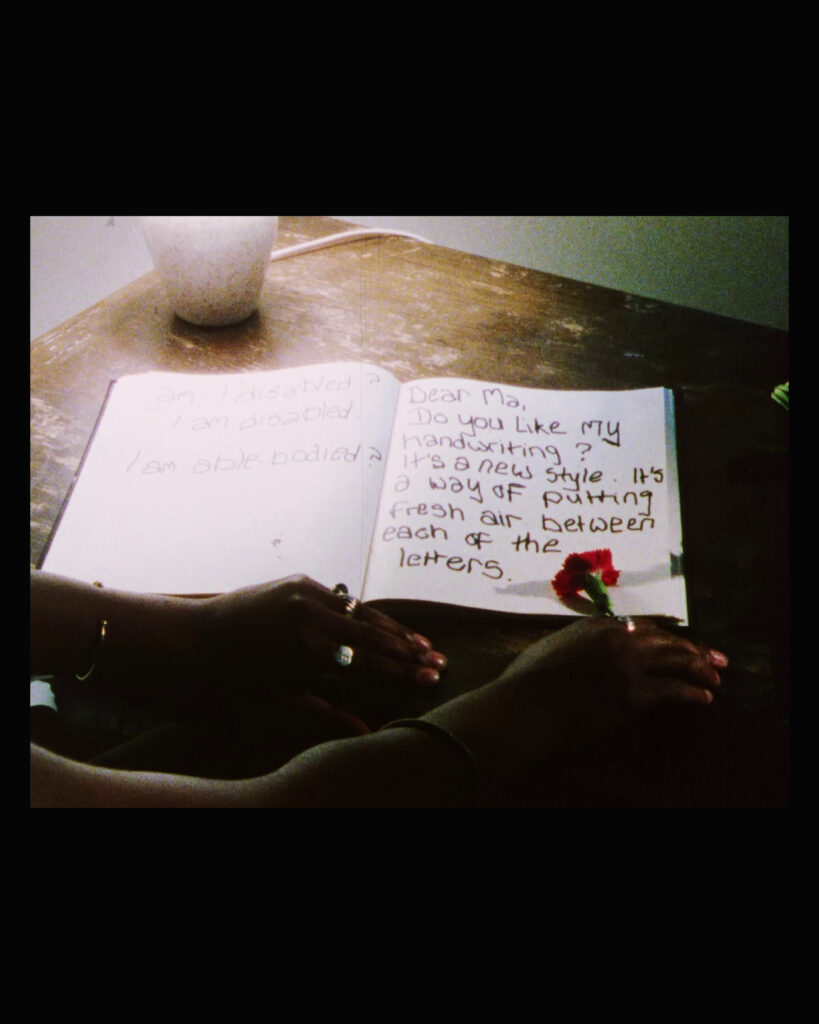 am I disabled ?
I am disabled.
I am able-bodied ?
Dear Ma,
Do you like my
handwriting ?
It's a new style. It's
a way of putting
fresh air between
each of the
letters.